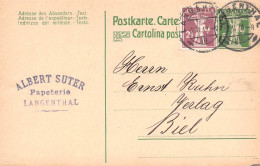 Adresse des Absenders. - Text.
Adresse de l'expéditeur. - Texte.
Indirizzo del mittente. - Testo.
Postkarte. Carte
Cartolina post
ALBERT SUTER
Papeterie
LANGENTHAL
Herrn
Ernst Kuhn
Verlag
Biel